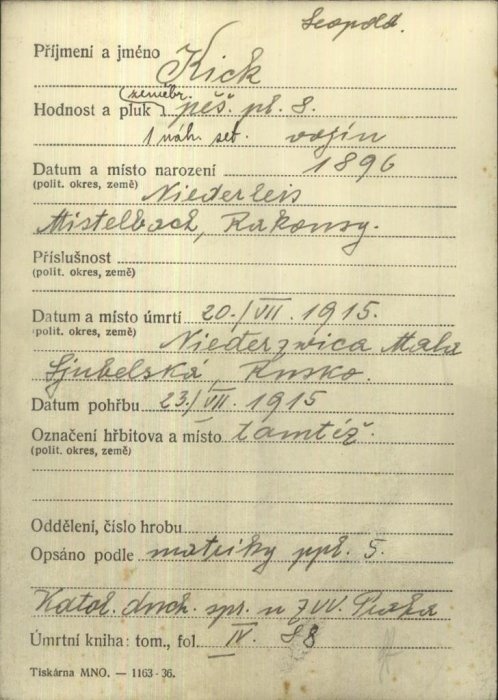 Leopold.
Příjmení a jméno Kick
zeměbr.
Hodnost a pluk pěš. pl. 8.
1 náh. set. vojín
Datum a místo narození 1896
(polit. okres, země) Niederleis
Mistelbach, Rakousy.
Příslušnost
(polit. okres, země)
Datum a místo úmrtí 20./VII. 1915.
(polit. okres, země) Niederzwica Mala
Ljubelská, Rusko.
Datum pohřbu 23./VII. 1915
Označení hřbitova a místo tamtéž.
(polit. okres, země)
Oddělení, číslo hrobu
Opsáno podle matriky ppl. 5.
Katol. duch. spr. u ZVV. Praha
Úmrtní kniha: tom., fol. IV. 88
Tiskárna MNO. — 1163-36.